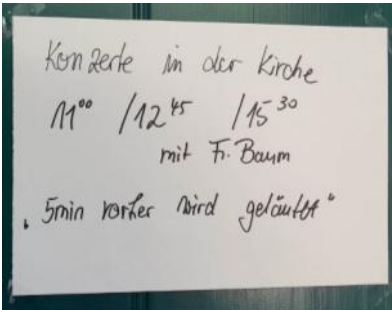 Konzerte in der Kirche
11⁰⁰ /12⁴⁵ /15³⁰
mit Fr. Baum
„5min vorher wird geläutet“